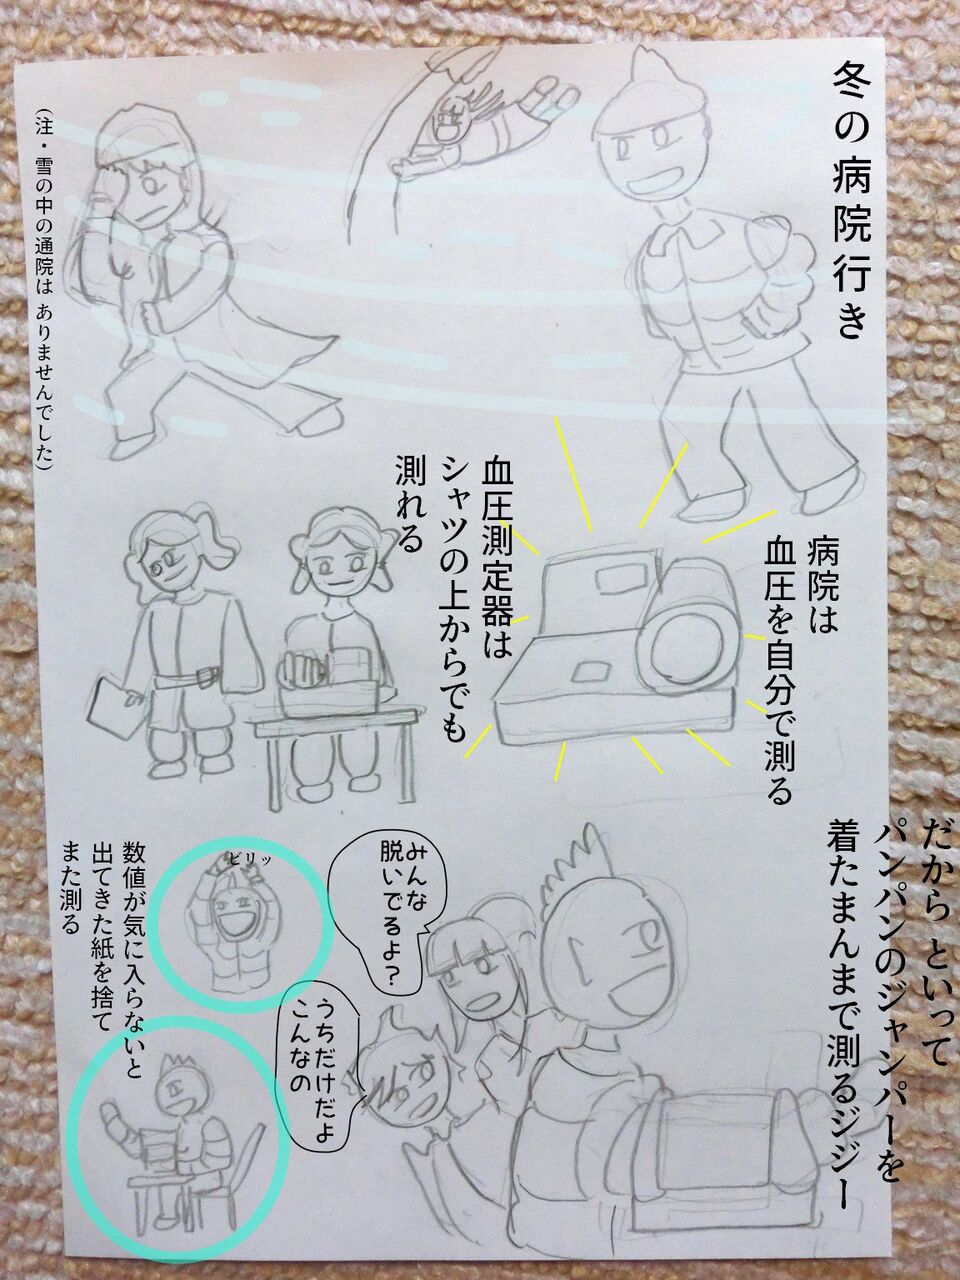 冬の病院行き
(注・雪の中の通院は ありませんでした)
病院は
血圧を自分で測る
血圧測定器は
シャツの上からでも
測れる
だから といって
パンパンのジャンパーを
着たまんまで測るジジー
みんな
脱いでるよ?
うちだけだよ
こんなの
ビリッ
数値が気に入らないと
出てきた紙を捨て
また測る